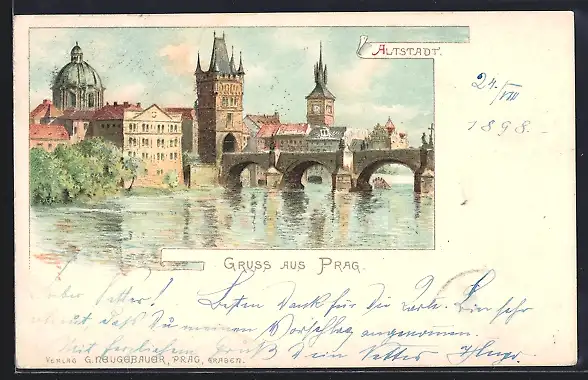 ALTSTADT.
24./VIII
1898.
GRUSS AUS PRAG.
Lieber Vetter! Besten Dank für die Karte. Bin sehr
erfreut, dass Du meinen Vorschlag angenommen.
Mit herzlichem Gruß Dein Vetter
VERLAG G. NEUGEBAUER, PRAG, GRABEN.